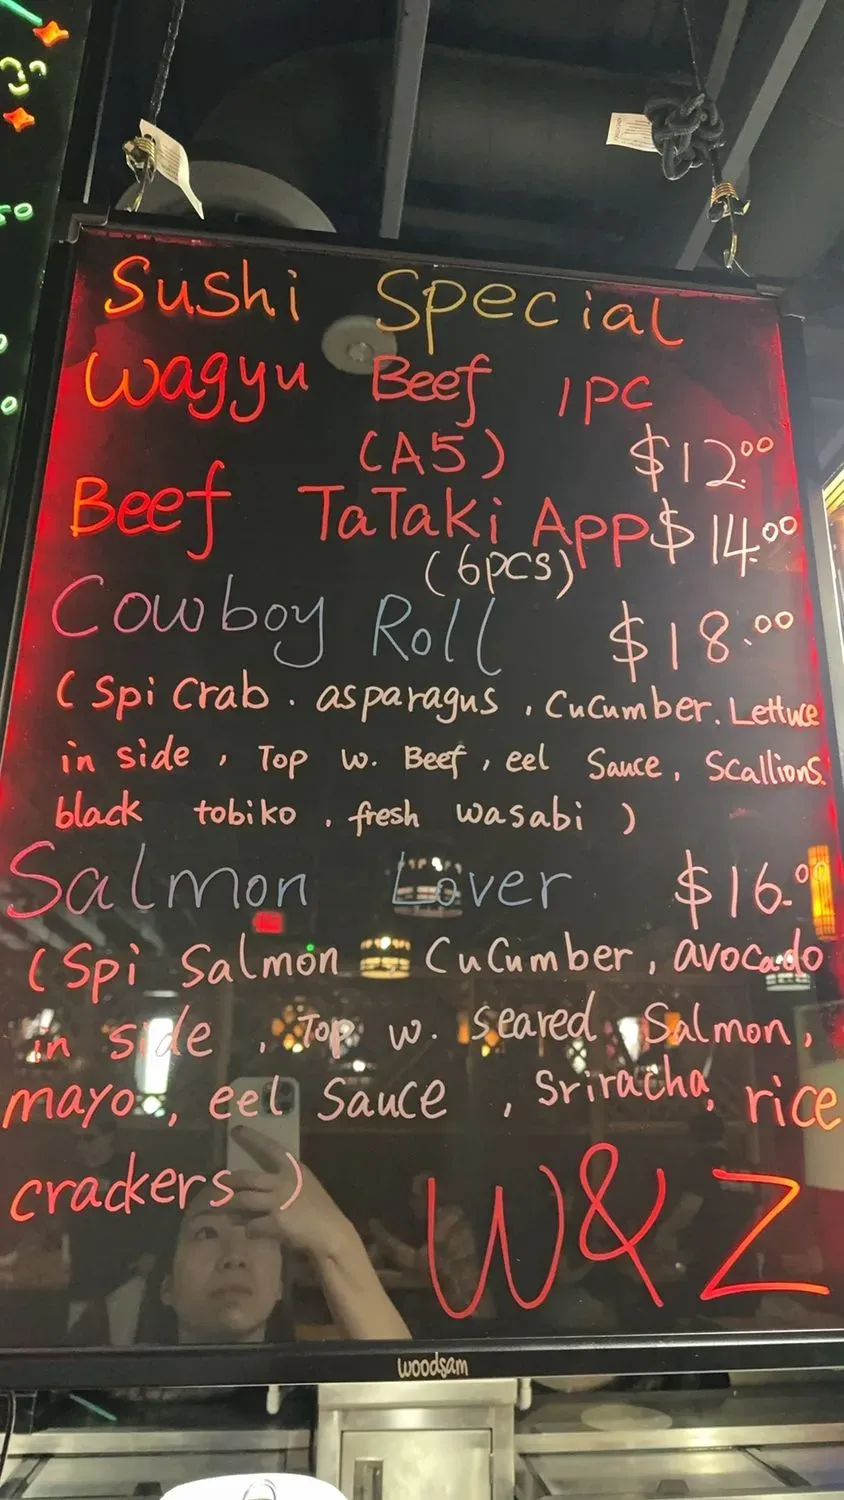 Sushi Special
Wagyu Beef 1PC
(A5) $12.00
Beef TaTaki App $14.00
(6pcs)
Cowboy Roll $18.00
(Spi Crab. asparagus, CuCumber. Lettuce
in side, Top w. Beef, eel Sauce, Scallions.
black tobiko, fresh wasabi)
Salmon Lover $16.00
(Spi Salmon CuCumber, avocado
in side, Top w. Seared Salmon,
mayo, eel Sauce, Sriracha, rice
crackers)
W&Z
woodsam